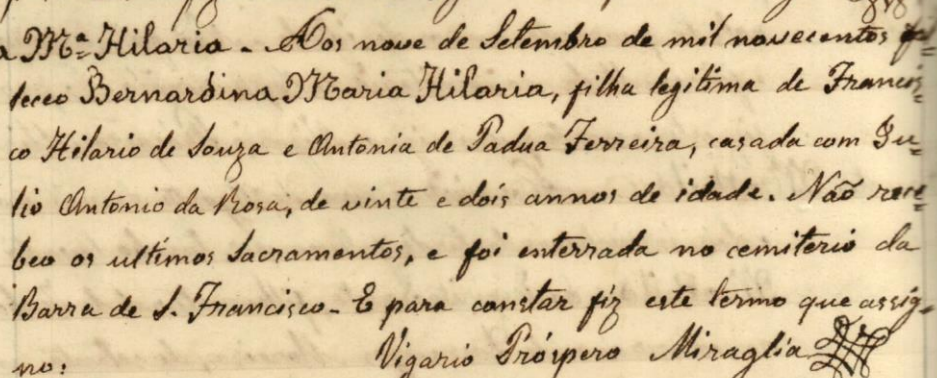 a Mª Hilaria - Aos nove de Setembro de mil novecentos fal=
leceo Bernardina Maria Hilaria, filha legitima de Francis=
co Hilario de Souza e Antonia de Padua Ferreira, casada com Ju=
lio Antonio da Rosa, de vinte e dois annos de idade. Não rece=
beo os ultimos Sacramentos, e foi enterrada no cemiterio da
Barra de S. Francisco - E para constar fiz este termo que assig-
no:          Vigario Próspero Miraglia